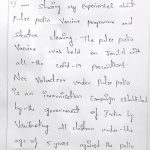 I am sharing my experiences about
Pulse polio Vaccine programme and
situative cleaning. The pulse polio
Vaccine was held on Jan 31 with
all the covid-19 precautions
Nss Volunteer under pulse polio
is an immunisation campaign established
by the government of India by
Vaccinating all children under the
age of 5 years against the polio